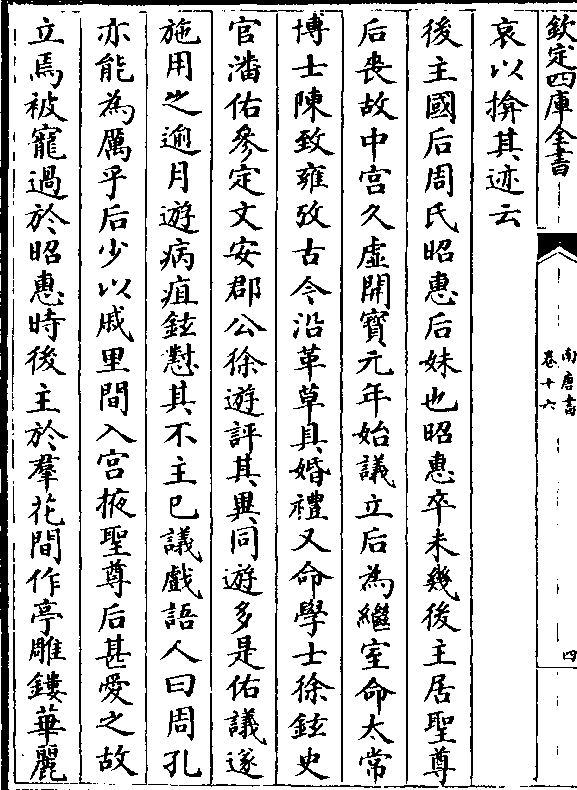 欽定四庫全書
南唐書
卷十六
四
哀以揜其迹云
後主國后周氏昭惠后妹也昭惠卒未幾後主居聖尊
后喪故中宮久虛開寶元年始議立后為繼室命太常
博士陳致雍攷古今沿革草具婚禮又命學士徐鉉史
官潘佑參定文安郡公徐遊評其異同遊多是佑議遂
施用之逾月遊病疽鉉懟其不主已議戲語人曰周孔
亦能為厲乎后少以戚里間入宮掖聖尊后甚愛之故
立焉被寵過於昭惠時後主於羣花間作亭雕鏤華麗